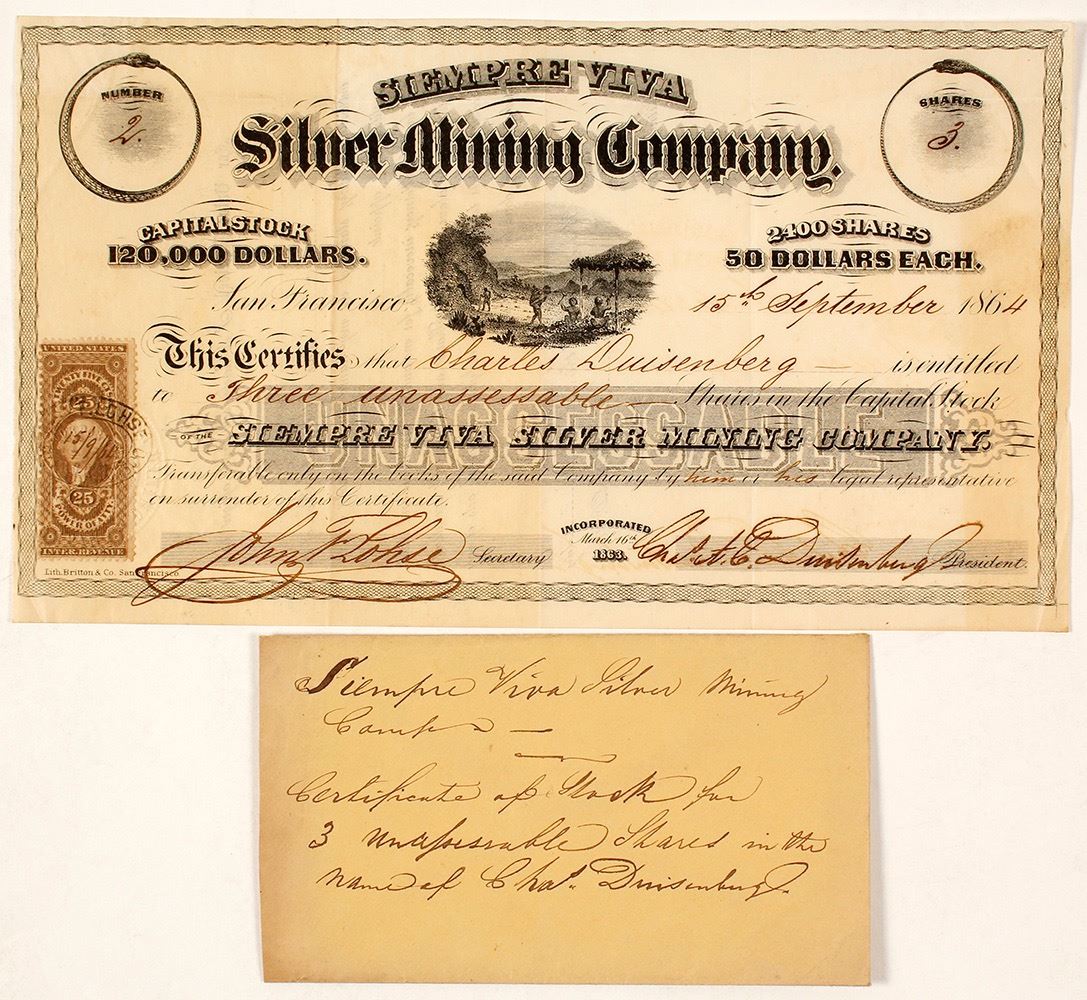 NUMBER
2.
SHARES
3.
SIEMPRE VIVA
Silver Mining Company.
CAPITAL STOCK
120,000 DOLLARS.
2400 SHARES
50 DOLLARS EACH.
San Francisco 15th September 1864
This Certifies that Charles Duisenberg — is entitled
to Three unassessable — Shares in the Capital Stock
UNASSESSABLE
OF THE SIEMPRE VIVA SILVER MINING COMPANY.
Transferable only on the books of the said Company by him or his legal representative
on surrender of this Certificate.
UNITED STATES
25
25
POWER OF ATT'Y
INTER. REVENUE
INCORPORATED
March 16th
1863.
John F Lohse Secretary
Chas. A. C. Duisenberg President.
Lith. Britton & Co. San Francisco
Siempre Viva Silver Mining
Comp —
Certificate of Stock for
3 unassessable Shares in the
name of Chas. Duisenberg.